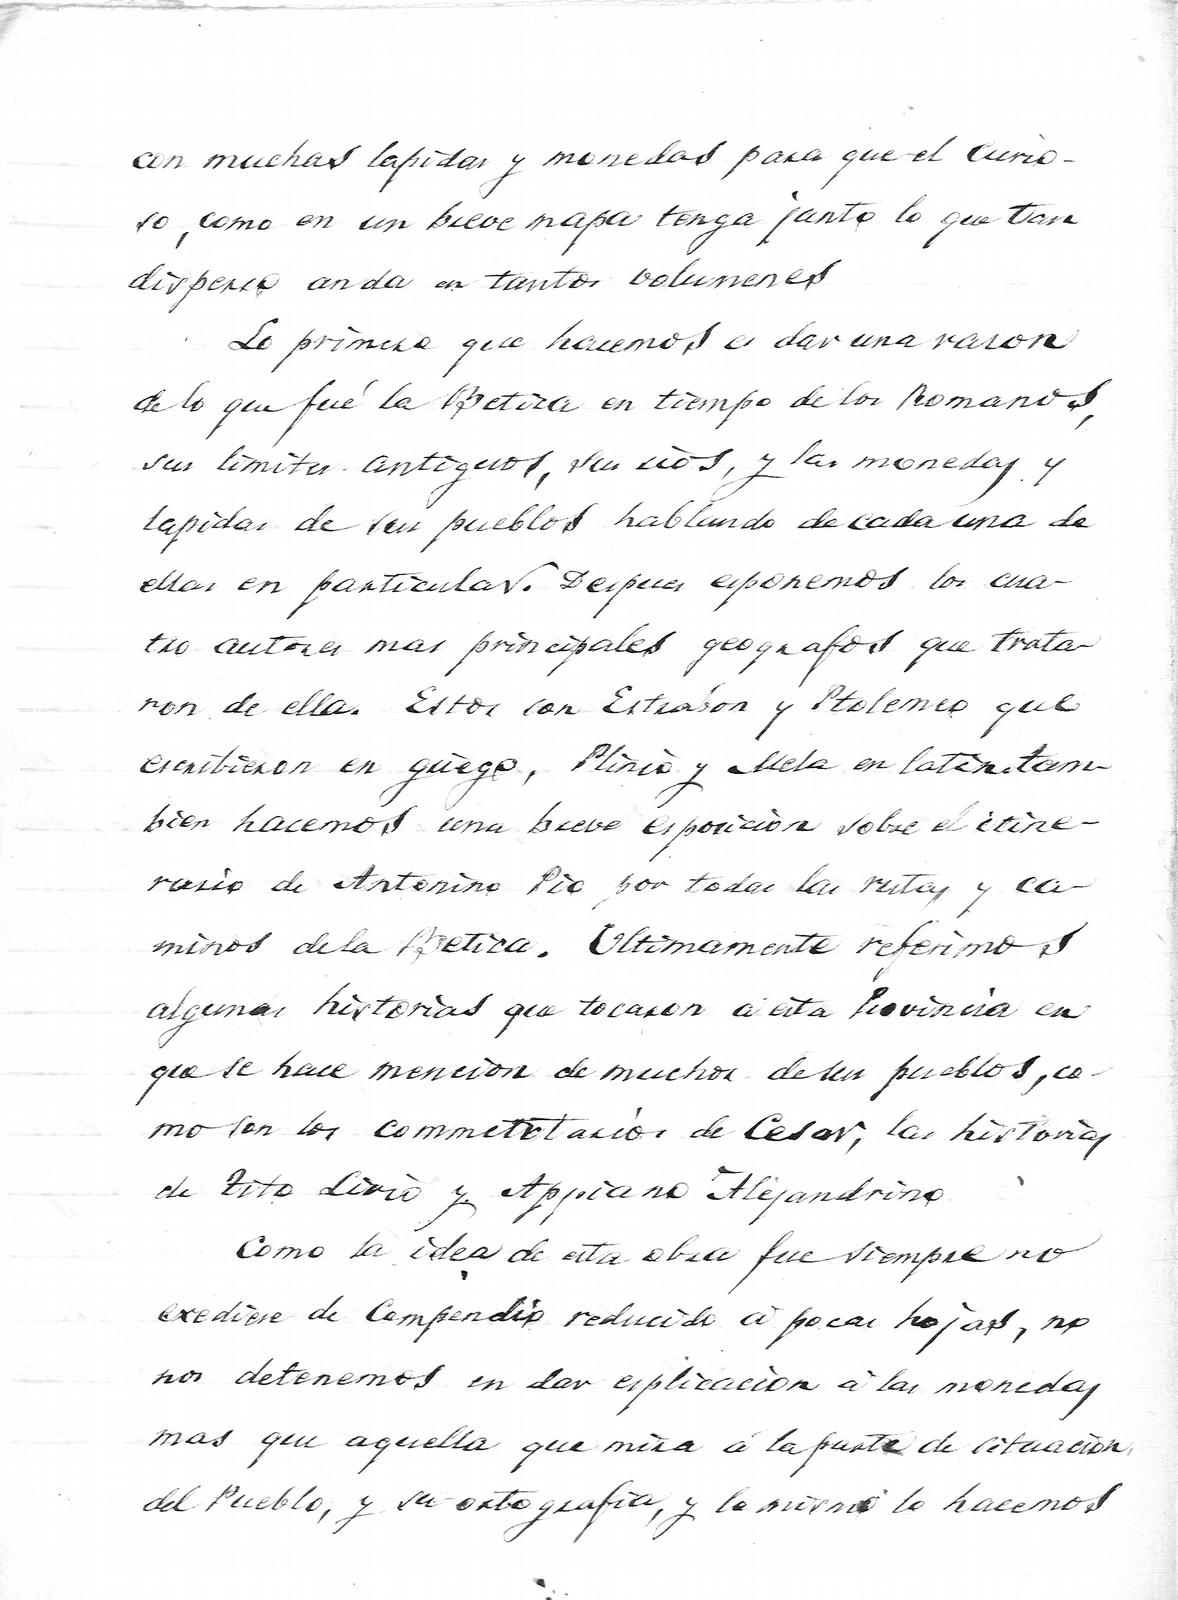 con muchas lapidas y monedas para que el curio-
so, como en un breve mapa tenga junto lo que tan
disperso anda en tantos volumenes
Lo primero que hacemos es dar una rason
de lo que fué la Betica en tiempo de los Romanos,
sus limites antiguos, sus rios, y las monedas y
lapidas de sus pueblos hablando de cada una de
ellas en particular. Despues esponemos los cua-
tro autores mas principales geografos que trata-
ron de ella. Estos son Estrabon y Ptolemeo que
escribieron en griego, Plinio y Mela en latin. tam-
bien hacemos una breve esposicion sobre el itine-
rario de Antonino Pio por todas las rutas y ca-
minos de la Betica. Ultimamente referimos
algunas historias que tocaron á esta Provincia en
que se hace mencion de muchos de sus pueblos, co-
mo son los commettarios de Cesar, las historias
de Tito Livio y Appiano Alejandrino
Como la idea de esta obra fue siempre no
exediese de Compendio reducido á pocas hojas, no
nos detenemos en dar esplicacion á las monedas
mas que aquella que mira á la parte de situacion
del Pueblo, y su ortografia, y lo mismo lo hacemos